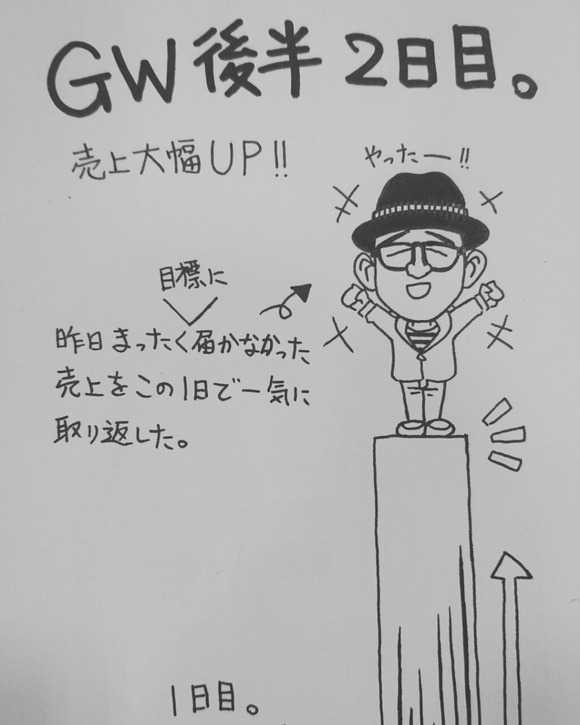 GW後半2日目。
売上大幅UP!!
やったー!!
目標に
昨日まったく届かなかった
売上をこの1日で一気に
取り返した。
1日目。